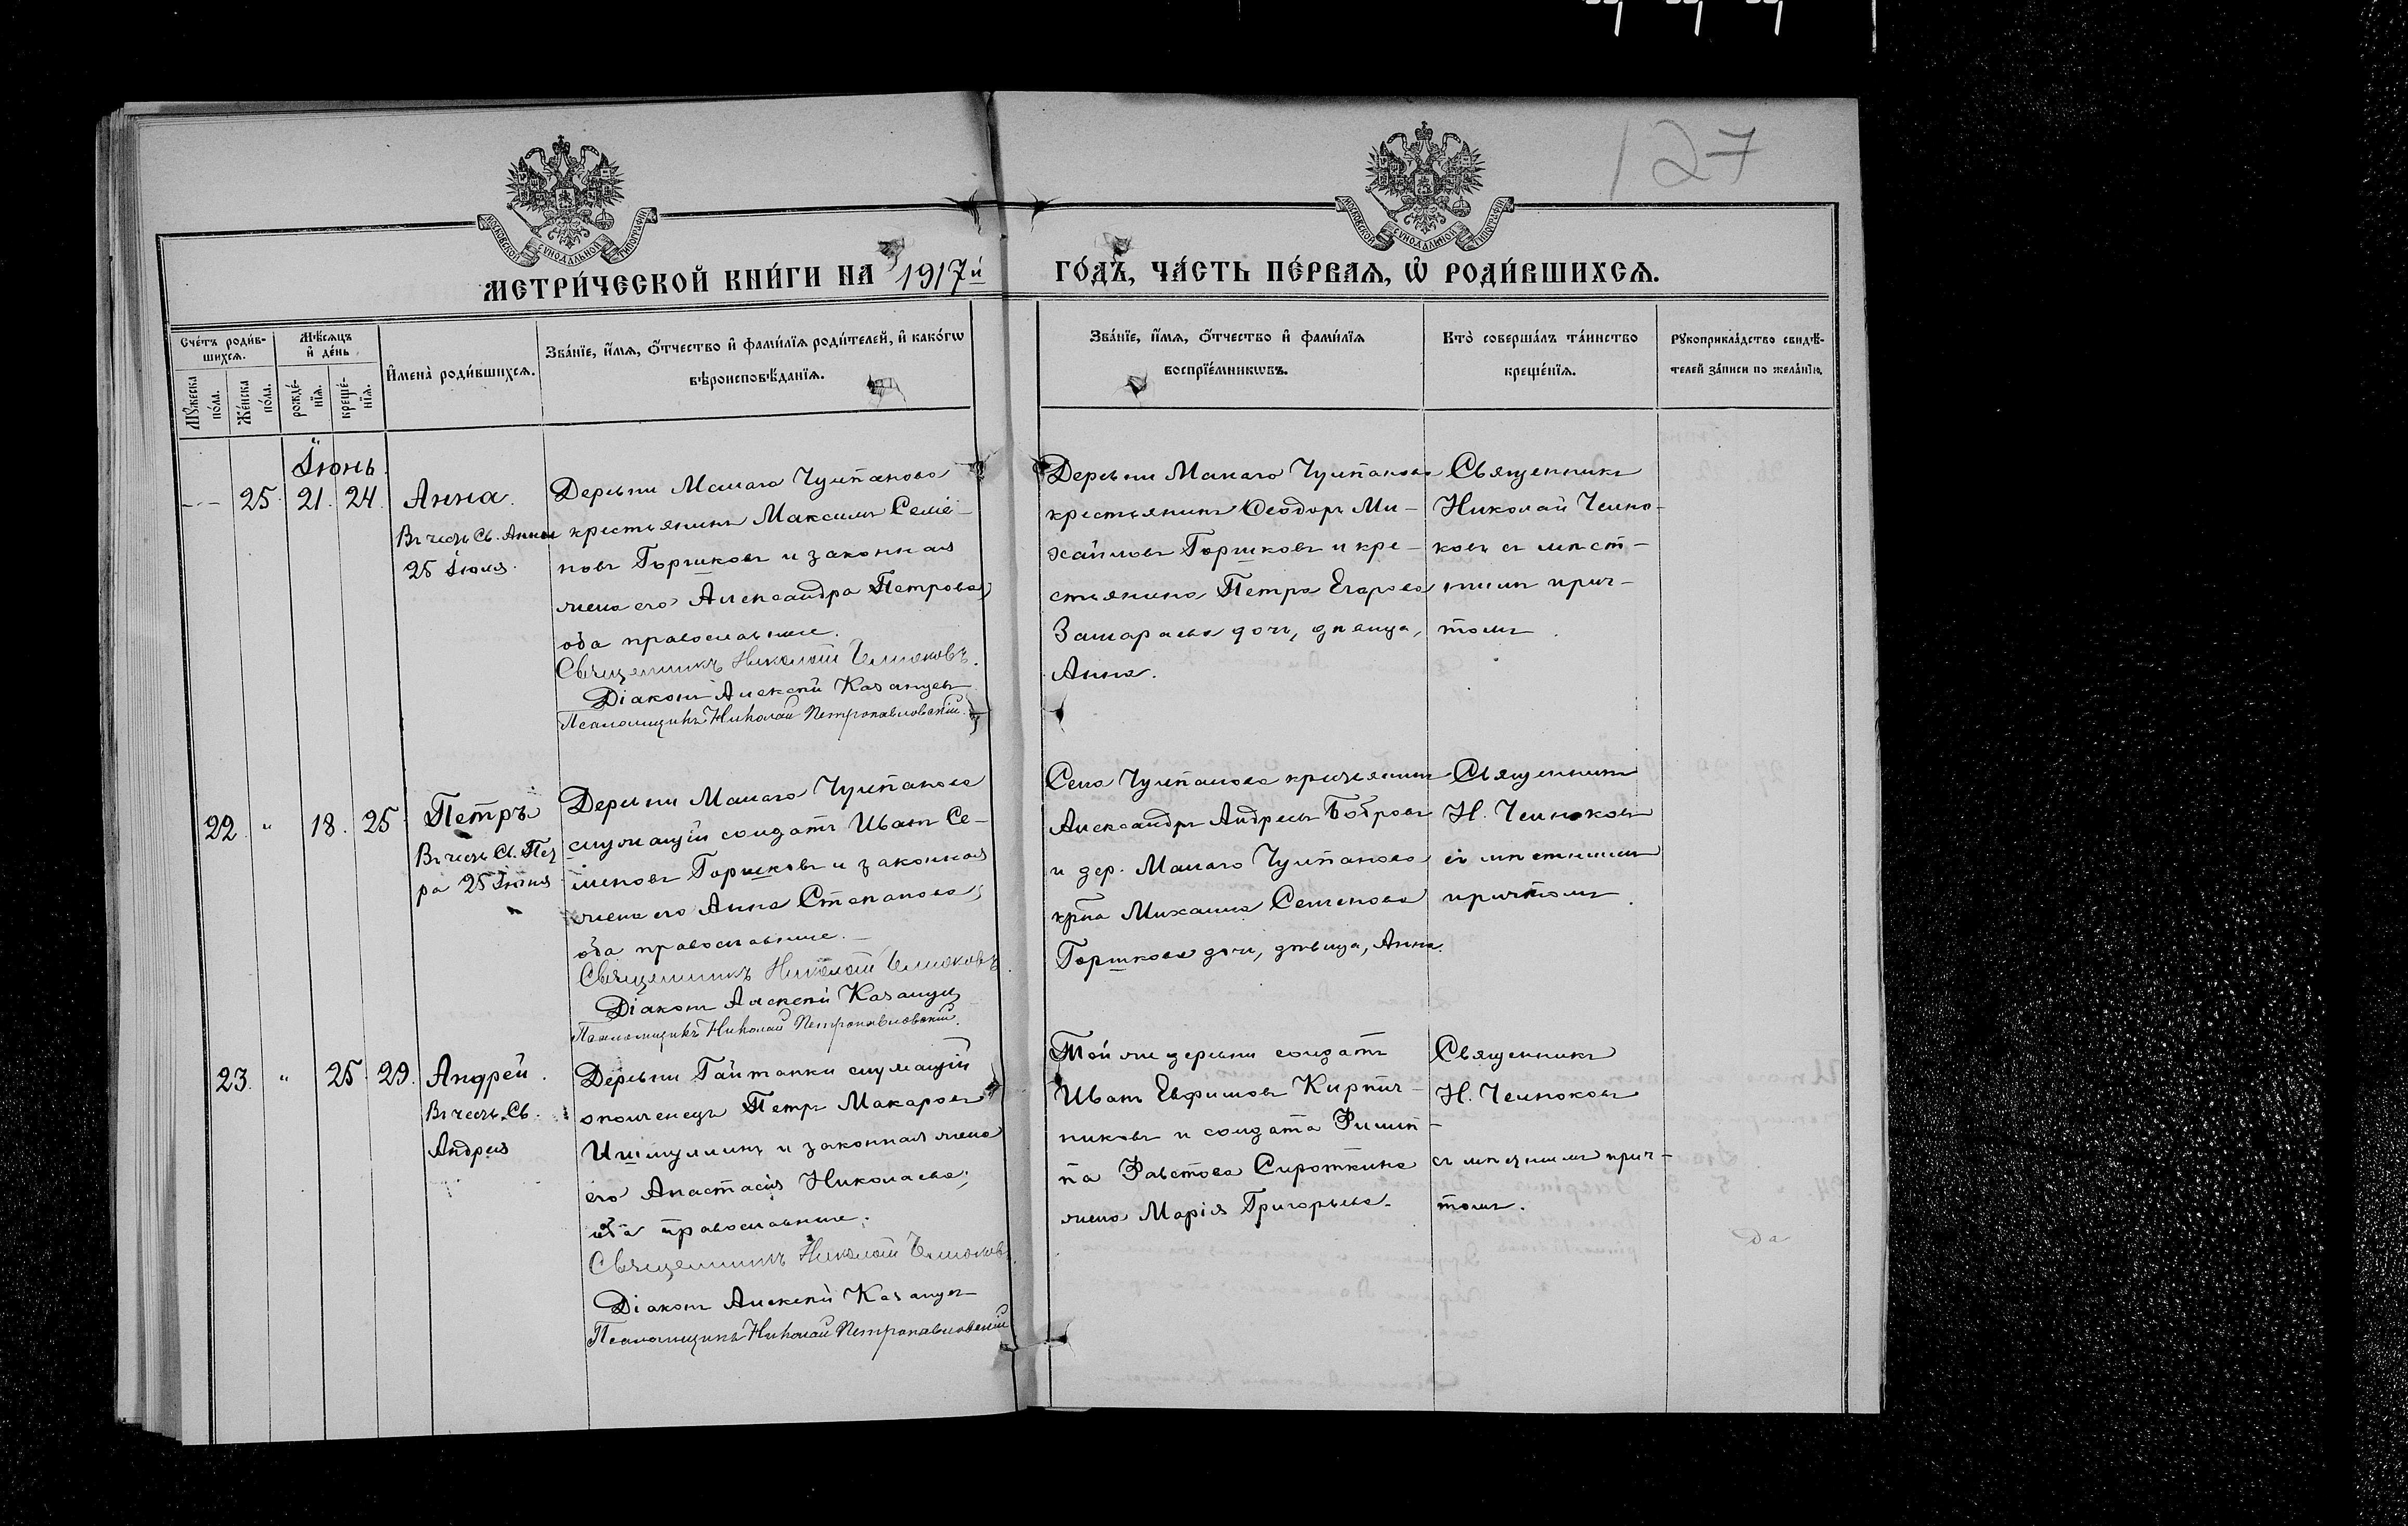 127
МОСКОВСКОЙ СѴНОДАЛЬНОЙ ТИПОГРАФІИ
МОСКОВСКОЙ СѴНОДАЛЬНОЙ ТИПОГРАФІИ
МЕТРИ́ЧЕСКОЙ КНИ́ГИ НА 1917й ГО́ДЪ, ЧА́СТЬ ПЕ́РВАѦ, Ѡ҆ РОДИ́ВШИХСѦ.
Сче́тъ роди́в-
шихсѧ.
Мѣ́сѧцъ
и҆ де́нь
Мꙋ́жеска
по́ла.
Же́нска
по́ла.
рожде́-
нїѧ.
креще́-
нїѧ.
И҆мена̀ роди́вшихсѧ.
Зва́нїе, и҆́мѧ, ѻ҆́тчество и҆ фами́лїѧ роди́телей, и҆ како́гѡ
вѣроисповѣ́данїѧ.
Зва́нїе, и҆́мѧ, ѻ҆́тчество и҆ фами́лїѧ
воспрїе́мникѡвъ.
Кто̀ соверша́лъ та́инство
креще́нїѧ.
Рꙋкоприкла́дство свидѣ́-
телей за́писи по жела́нїю.
Іюнь.
25. 21. 24.
Анна.
Въ честь Св. Анны
25 Іюля.
Деревни Малаго Чулпаново
крестьянинъ Максимъ Семе-
новъ Горшковъ и законная
жена его Александра Петрова,
оба православные.
Священникъ Николай Челноковъ.
Діаконъ Алексѣй Казанцевъ
Псаломщикъ Николай Петропавловскій.
Деревни Малаго Чулпаново
крестьянинъ Ѳеодоръ Ми-
хайловъ Горшковъ и кре-
стьянина Петра Егорова
дочь, дѣвица,
Анна.
Священникъ
Николай Челно-
ковъ съ мѣст-
нымъ прич-
томъ.
22. " 18. 25.
Петръ
Въ честь Св. Пет
ра 25 Іюня
Деревни Малаго Чулпанова
служащій солдатъ Иванъ Се-
меновъ Горшковъ и законная
жена его Анна Степанова,
оба православные.
Священникъ Николай Челноковъ.
Діаконъ Алексѣй Казанцевъ
Псаломщикъ Николай Петропавловскій.
Села Чулпанова крестьянинъ
Александръ Андреевъ Бобровъ
и дер. Малаго Чулпаново
крⷭ҇на Михаила Семенова
Горшкова дочь, дѣвица, Анна.
Священникъ
Н. Челноковъ
съ мѣстнымъ
причтомъ.
23. " 25. 29.
Андрей.
Въ честь Св.
Андрея
Деревни Гайтанки служащій
ополченецъ Петръ Макаровъ
Ишмулкинъ и законная жена
его Анастасія Николаева,
оба православные.
Священникъ Николай Челноковъ.
Діаконъ Алексѣй Казанцевъ
Псаломщикъ Николай Петропавловскій
Той же деревни солдатъ
Иванъ Евфимовъ Кирпич-
никовъ и солдата Филип-
па Фавстова Сироткина
жена Марія Григорьева.
Священникъ
Н. Челноковъ
съ мѣстнымъ прич-
томъ.